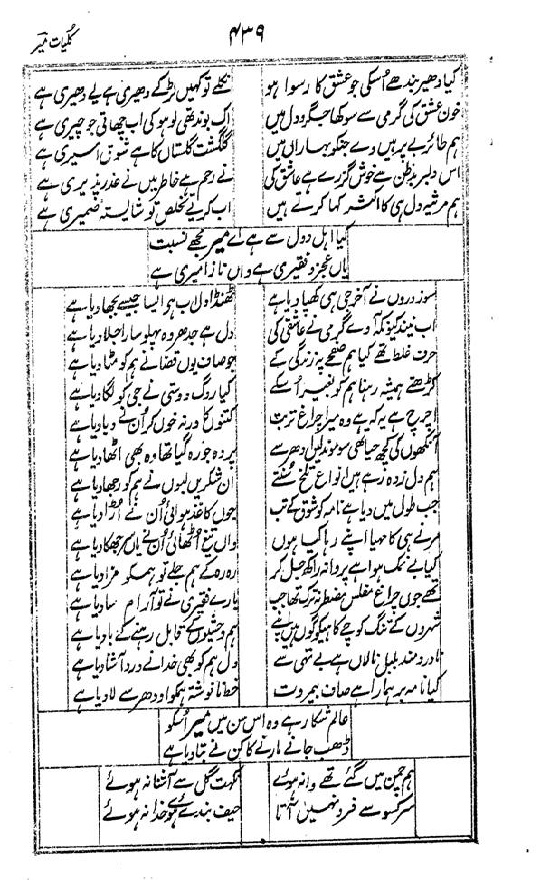 ۴۳۹
کلیات میر
کیا دھیر بندھے اُسکی جو عشق کا رسوا ہو نکلے تو کہیں لڑکے دھیری ہے بے دھیری ہے
خون عشق کی گرمی سے سوکھا جگر و دل میں اک بوند تھی لوہو کی اب چھاتی جو چیری ہے
ہم طائر بے پر ہیں وے جنکو بہاراں میں گلگشت گلستاں کا ہے شوق اسیری ہے
اس دلبر بدظن سے خوش گزرے ہے عاشق کی نے رحم ہے خاطر میں نے عذر پذیری ہے
ہم مرثیہ دل ہی کا اکثر کہا کرتے ہیں اب کریے تخلص تو شایستہ ضمیری ہے
کیا اہل دول سے ہے اے میر مجھے نسبت
یاں عجز و فقیری ہے واں ناز امیری ہے
سوز دروں نے آخر جی ہی کھپا دیا ہے ٹھنڈا دل اب ہے ایسا جیسے بجھا دیا ہے
اب نیند کیونکہ آوے گرمی نے عاشقی کی دل ہے جدھر وہ پہلو سارا جلا دیا ہے
حرف غلط تھے کیا ہم صفحے پہ زندگی کے جو صاف یوں قضا نے ہم کو مٹا دیا ہے
کڑھتے ہمیشہ رہنا ہم کو بغیر اُسکے کیا روگ دوستی نے جی کو لگا دیا ہے
اچرج ہے یہ کہ ہے وہ میرا چراغ تربت کتنوں کا ورنہ خوں کر اُن نے دبا دیا ہے
آنکھوں کی کچھ حیا تھی سو موند لیں ادھر سے پردہ جو رہ گیا تھا وہ بھی اٹھا دیا ہے
ہم دل زدہ رہے ہیں انواع تلخ سُنتے ان شکریں لبوں نے ہم کو رجھا دیا ہے
جب طول میں دیا ہے نامہ کو شوق کے تب جوں کاغذ ہوائی اُن نے اُڑا دیا ہے
مرنے ہی کا مہیا اپنے رہا کیا ہوں واں تیغ اُٹھائی اُن نے یاں سر جھکا دیا ہے
کیا بے نمک ہوا ہے پروانہ راکھ جل کر رہ رہ کے ہم جلے تو ہمکو مزا دیا ہے
تھے جوں چراغ مفلس مضطر نہ ترک تھا جب بارے فقیری نے تو آرام سا دیا ہے
شہروں کے تنگ کوچے کاہیکو گوں ہیں اپنے ہم وحشیوں کے قابل رہنے کے بادیا ہے
نادردمند بلبل نالاں ہے بے تہی سے دل ہم کو بھی خدا نے درد آشنا دیا ہے
کیا نامہ بر ہمارا ہے صاف بیمروت خط نانوشتہ ہمکو اودھر سے لا دیا ہے
عالم شکار ہے وہ اس سن میں میر اُسکو
ڈھب جانے مارنے کا کن نے بتا دیا ہے
ہم چمن میں گئے تھے وا نہ ہوئے نکہت گل سے آشنا نہ ہوئے
سر کسو سے فرو نہیں آتا حیف بندے ہوئے خدا نہ ہوئے